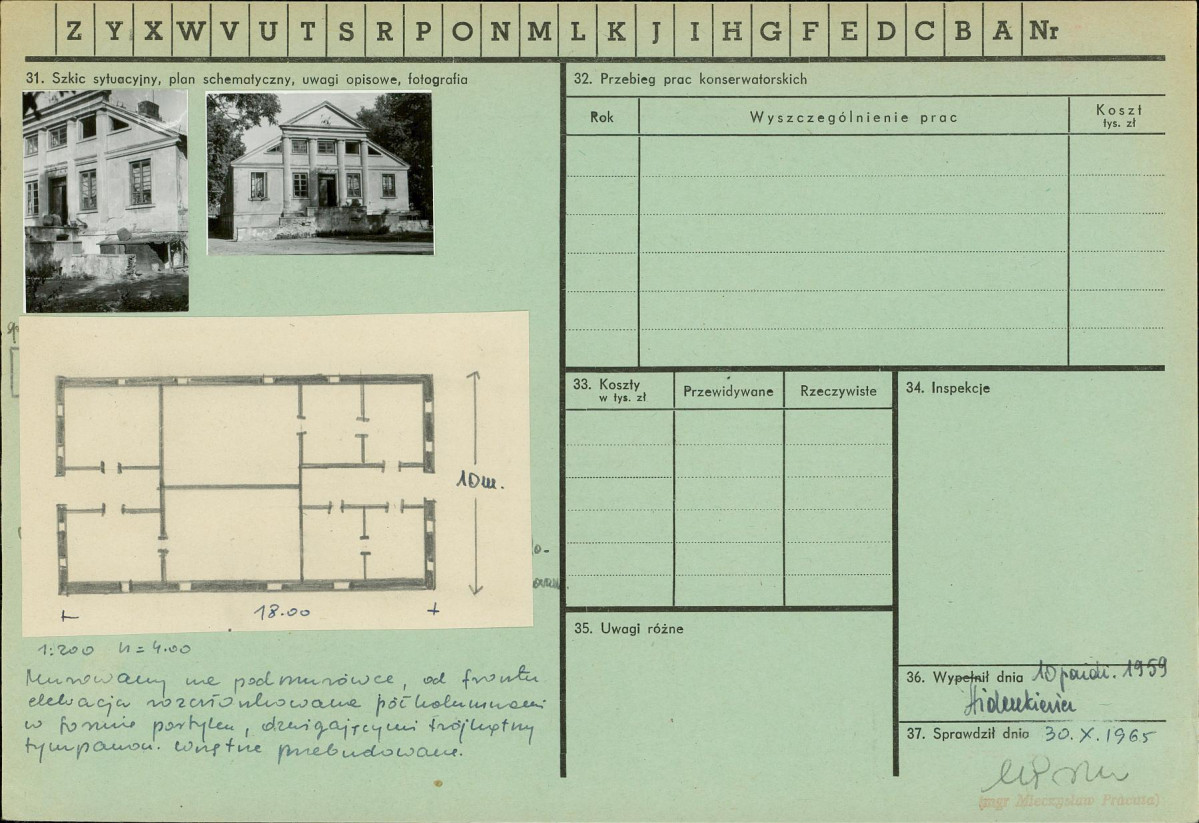 Z Y X W V U T S R P O N M L K J I H G F E D C B A Nr
31. Szkic sytuacyjny, plan schematyczny, uwagi opisowe, fotografia
10 m.
18.00
1:200 H = 4.00
Murowany na podmurówce, od frontu
elewacja rozczłonkowana półkolumnami
w formie portyku, dźwigającymi trójkątny
tympanon. Wnętrze przebudowane.
32. Przebieg prac konserwatorskich
Rok
Wyszczególnienie prac
Koszt
tys. zł
33. Koszty
w tys. zł
Przewidywane
Rzeczywiste
34. Inspekcje
35. Uwagi różne
36. Wypełnił dnia 10 paźdz. 1959
37. Sprawdził dnia 30.X.1965
(mgr Mieczysław Pracuta)